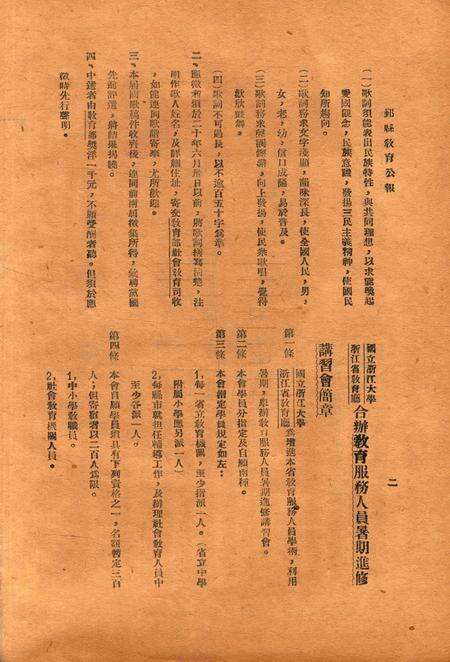 鄞縣教育公報
二
(一)歌詞須能表出民族特性，與共同理想，以求能喚起
愛國觀念，民族意識，發揚三民主義精神，使國民
知所趨向。
(二)歌詞務求文字淺顯，韻味深長，使全國人民，男，
女，老，幼，信口成誦，易於普及。
(三)歌詞務求
向上發揚，使民衆歌唱，覺得
歡欣鼓舞。
(四)歌詞不可過長，以不逾百五十字爲率。
二、應徵稿須於二十年六月卅日以前，將歌詞繕寫清楚，注
明作歌人姓名，及詳細住址，寄交教育部社會教育司收
，如能連同歌譜寄奉，尤所歡迎。
三、本屆國歌稿件收齊後，連同前兩屆徵集所得，
先前評選，將結果揭曉。
四、中選者由教育部獎洋一千元，不願受酬者聽。但須於應
徵時先行聲明。
國立浙江大學
浙江省教育廳
合辦教育服務人員暑期進修
講習會簡章
第一條
國立浙江大學
浙江省教育廳
爲增進本省教育服務人員學術，利用
暑期，舉辦教育服務人員暑期進修講習會。
第二條
本會學員分指定及自願兩種。
第三條
本會指定學員規定如左：
1,每一省立教育機關，至少指派一人。（省立中學
附屬小學應另派一人）
2,每縣市就担任輔導工作，及辦理社會教育人員中
至少各派一人。
第四條
本會自願學員須具有下列資格之一，名額暫定三百
人；但寄宿者以二百人爲限。
1,中小學教職員。
2,社會教育機關人員。